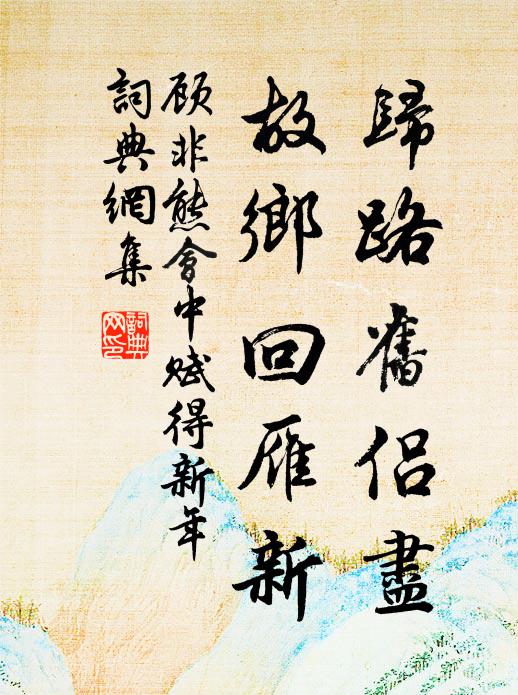 歸路舊侶盡
故鄉回雁新
顾非熊會中賦得新年
詞典網集
詞典網印